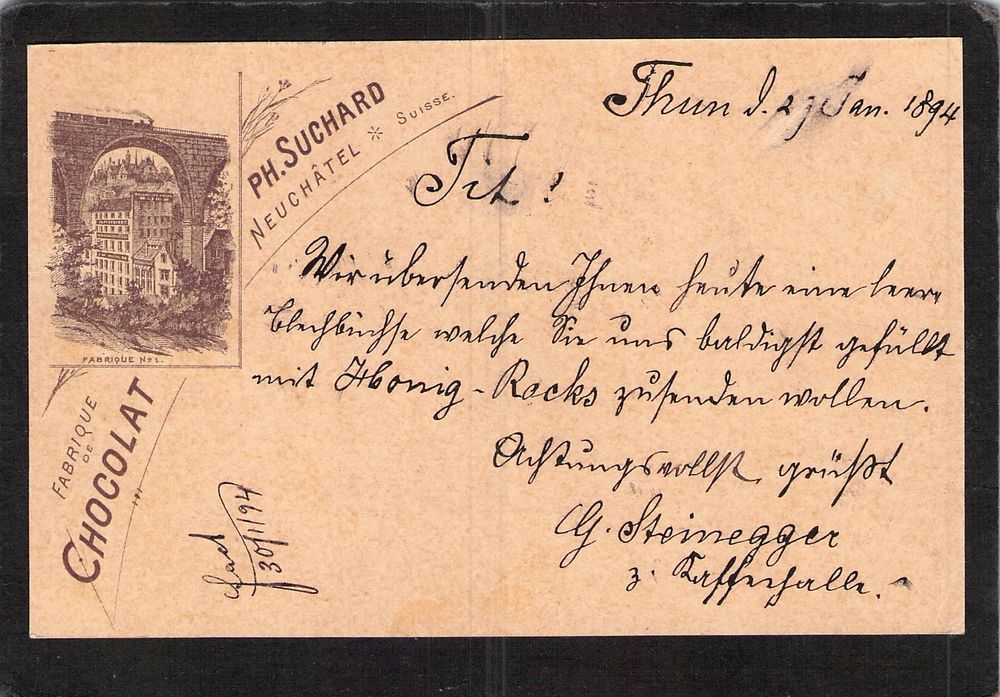 PH. SUCHARD
NEUCHÂTEL * SUISSE.
FABRIQUE No 1.
FABRIQUE
DE
CHOCOLAT
Thun d. 27 Jan. 1894
Tit!
Wir übersenden Ihnen heute eine leere
Blechbüchse welche Sie uns baldigst gefüllt
mit Honig-Rocks zusenden wollen.
Achtungsvollst grüßt
G. Steinegger
z. Kaffeehalle.
30/1/94